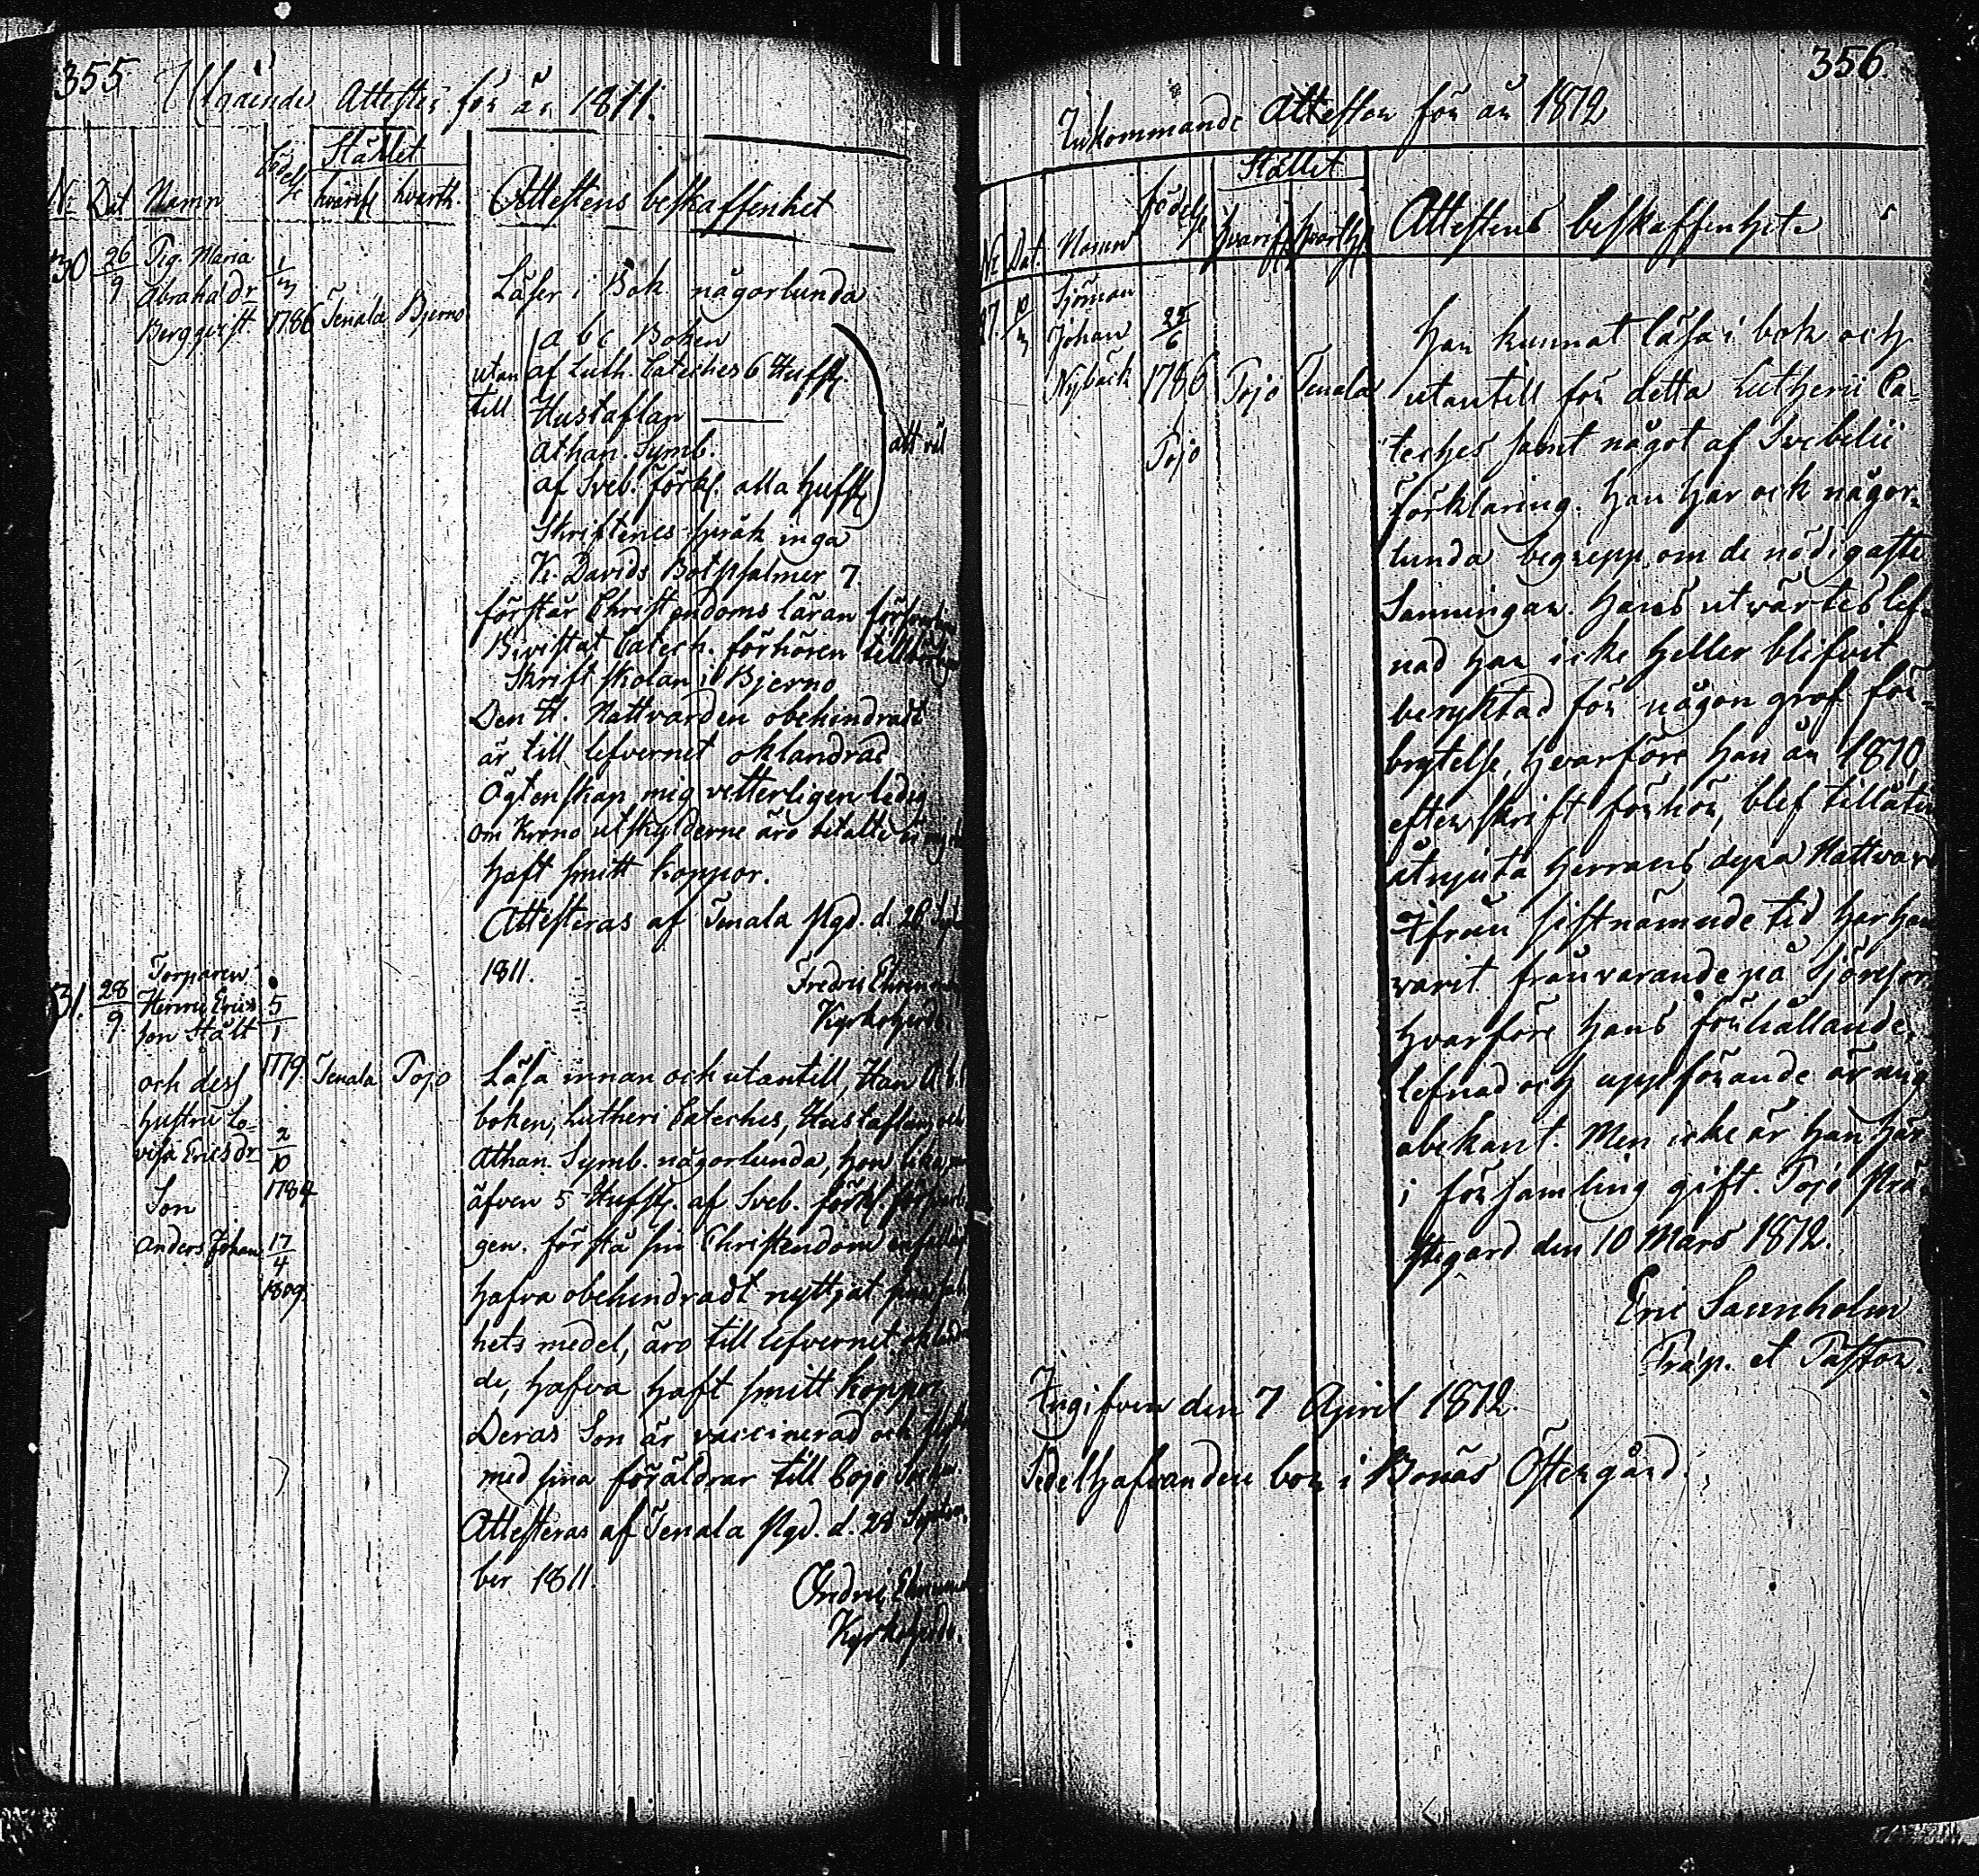 355 Utgående Attester för år 1811.
Stället
Nr Dat Namn födelse hvarifr. hvarth. Attestens beskaffenhet
30 26/9 Pig. Maria Abrahadr Bergqvist 1/3 1786 Tenala Bjerno
Läser i Bok någorlunda
a b c Boken
utan till af Luth. Cateches 6 Hufst.
Hustaflan
Athan. Symb. allt väl
af Sveb. förkl. alla Hufst
Skriftenes språk inga
K. Davids Botpsalmer 7.
förstår Christendoms läran
Bevistat Catech. förhören
Skriftskolan i Bjerno
Den H. Nattvarden obehindradt
är till lefvernet oklandrad
Ägtenskap mig vitterligen ledig
Om Krono utskylderne äro betalte
haft smitt koppor.
Attesteras af Tenala Pgd. d. 26
1811.
Kyrkoherde
31. 28/9 Torparen
Henric Erics
son Stålt 5/1
och dess 1779. Tenala Pojo
hustru Lo-
visa Ericsdr 2/10
1784
Son
Anders Johan 17/4
1809.
Läsa innan och utantill, Han
boken, Lutheri Cateches, Hustaflan
Athan. Symb. någorlunda, hon
äfven 5 Hufst. af Sveb. förkl.
gen. förstå sin Christendom
hafva obehindradt nyttjat sina
hets medel, äro till lefvernet
de, hafva haft smitt koppor
Deras Son är vaccinerad och
med sina föräldrar till Pojo
Attesteras af Tenala Pgd. d. 28 Septem
ber 1811.
Kyrkoherde.
356.
Inkommande Attester för år 1812
Stället
Nr Dat. Namn födelse hvarifr hvarth Attestens beskaffenhet
17. 10/3 Sjöman
Johan 22/6
Nybäck 1786 Pojo Tenala
Pojo
Han kunnat läsa i bok och
utantill för detta Lutherii Ca-
teches samt något af Svebelii
förklaring. Han har ock någor-
lunda begrepp om de nödigaste
Sanningar. Hans utvärtes lef-
nad har icke heller blifvit
beryktad för någon grof för-
brytelse, hvarföre han år 1810,
efter skriftförhör, blef tillåten
åtnjuta Herrans dyra Nattvard
Ifrån sistnämnde tid har han
varit frånvarande på sjöresor
hvarföre hans förhållande,
lefnad och uppförande är mig
obekant. Men icke är han här
i församling gift. Pojo Prä-
stegård den 10 Mars 1812.
Eric Sacenholm
Præp. et Pastor.
Ingifven den 7 April 1812.
Sedelhafvanden bor i Bonäs Östergård.